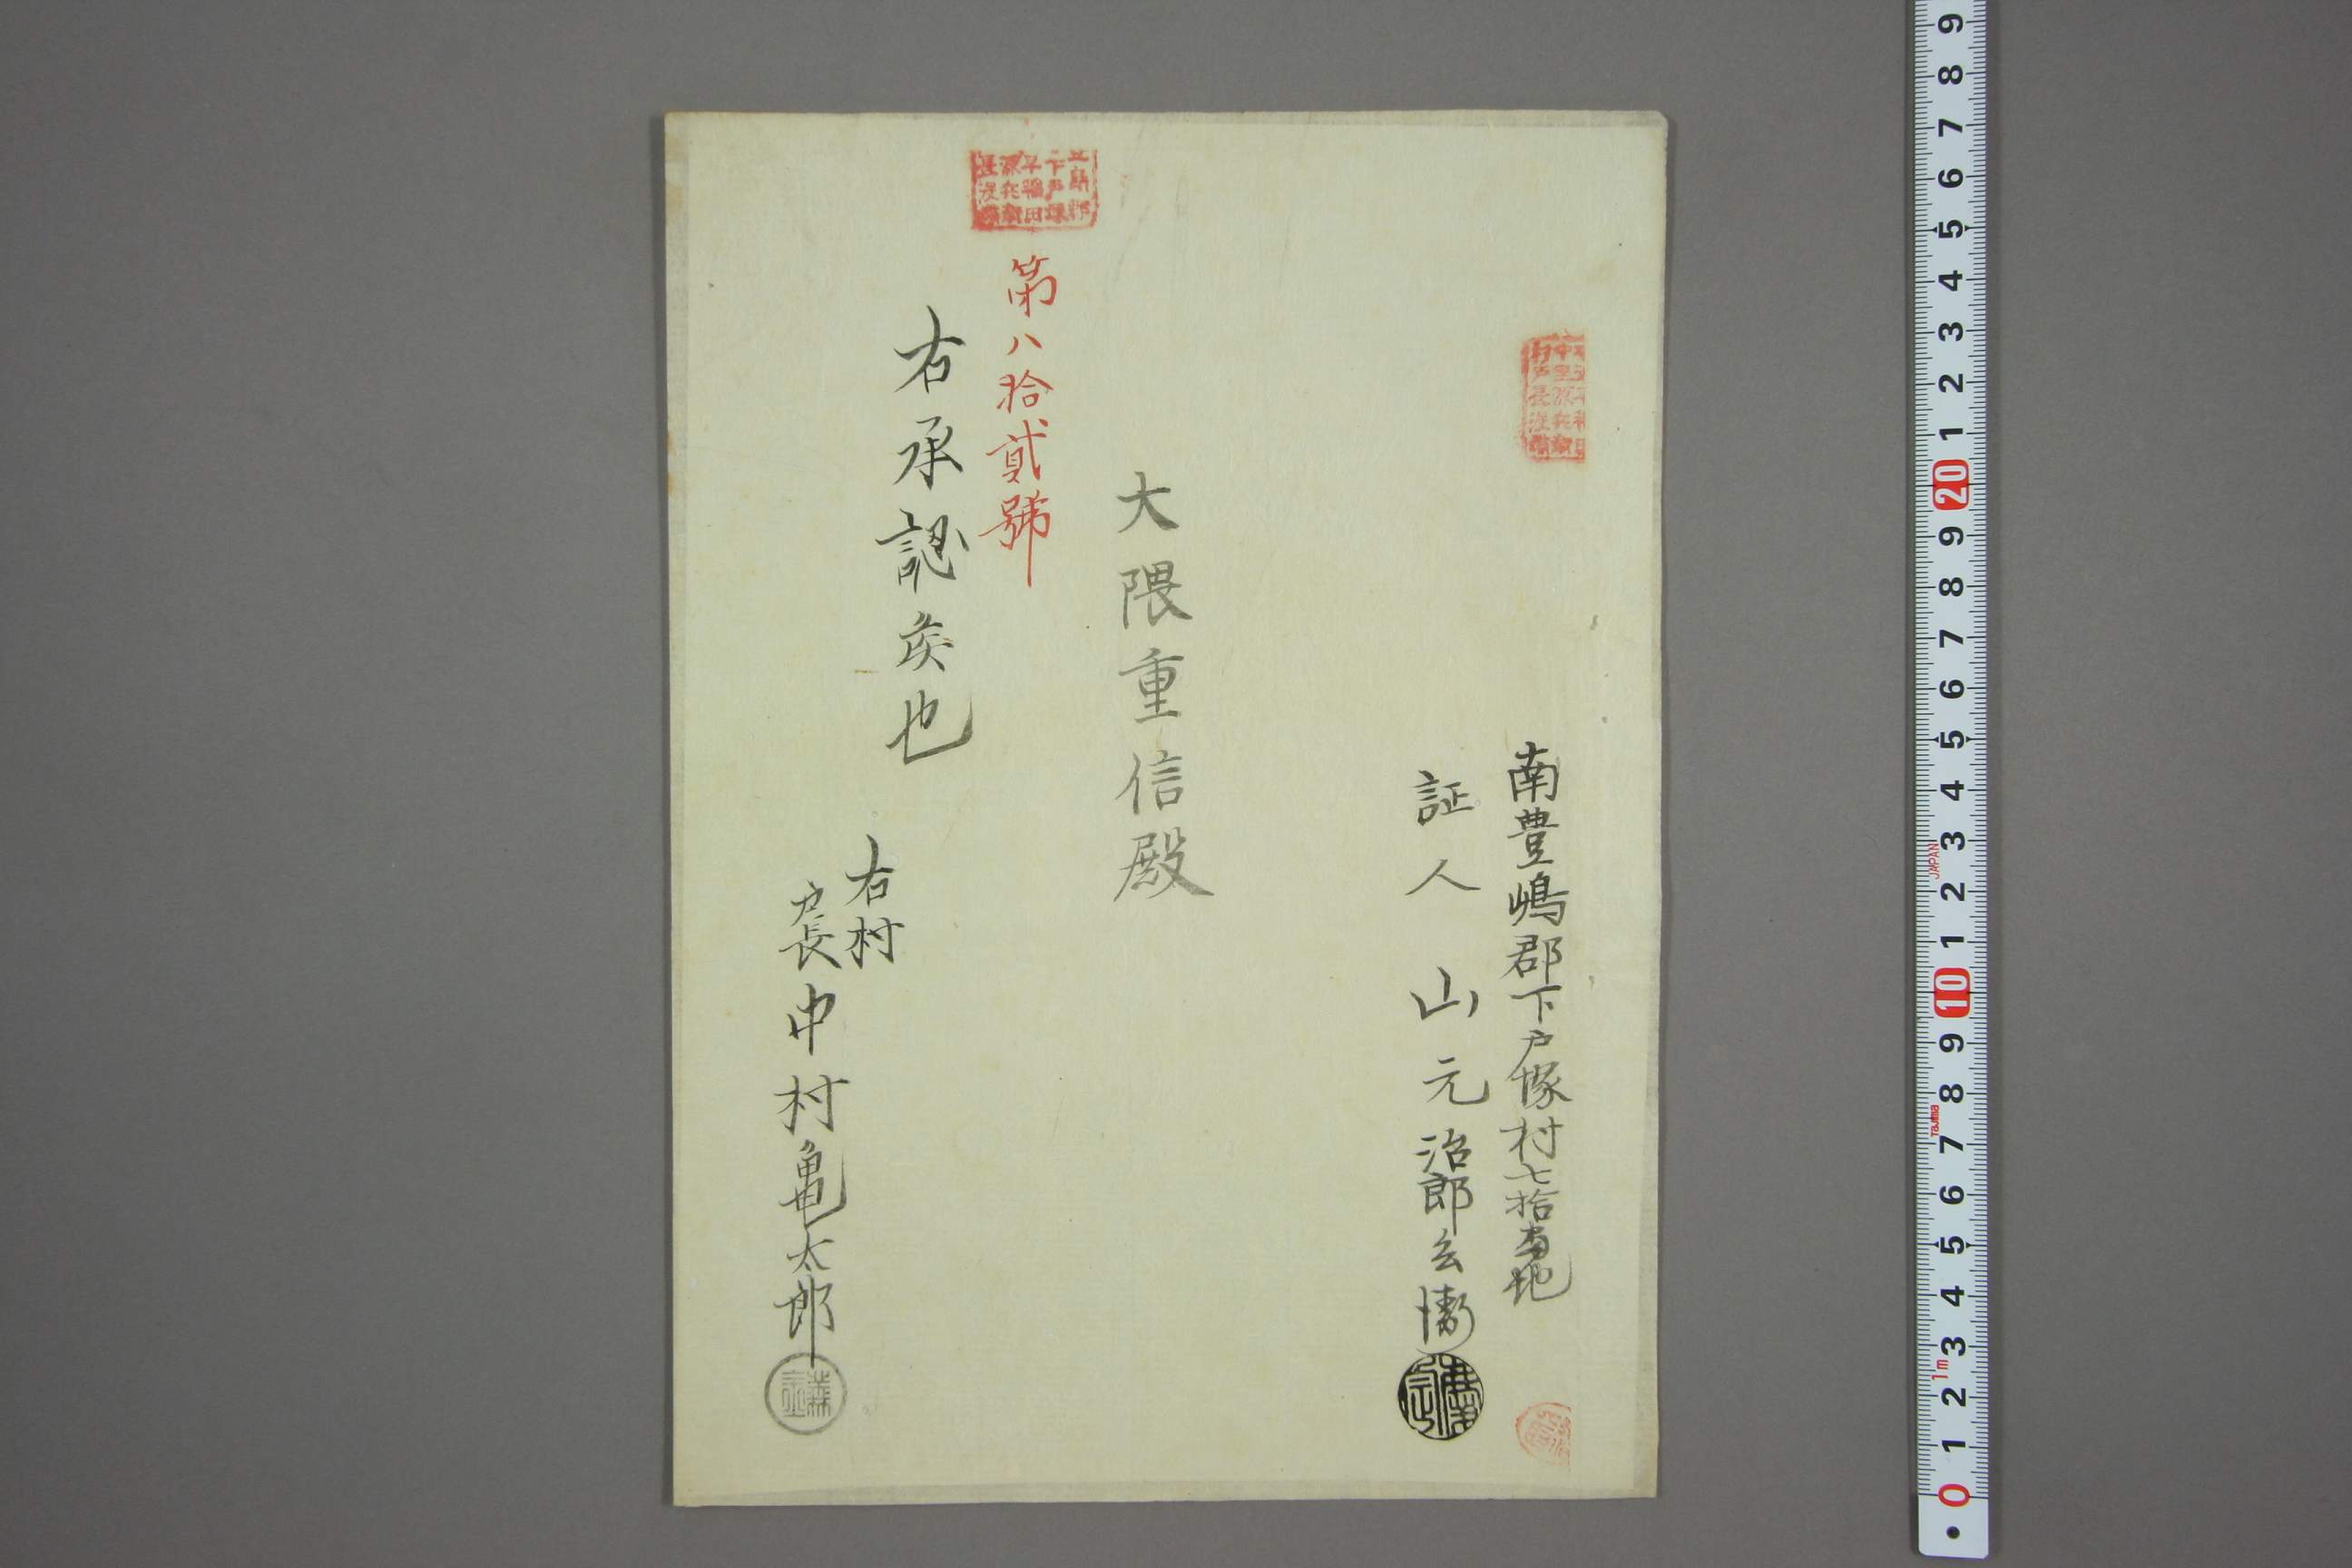 南豊嶋郡下戸塚村七拾番地
証人 山元治郎兵衛
大隈重信殿
第八拾貳號
右承認候也
右村
戸長 中村亀太郎
9 8 7 6 5 4 3 2 1 20 9 8 7 6 5 4 3 2 1 10 9 8 7 6 5 4 3 2 1 0
JAPAN
Tajima
1m